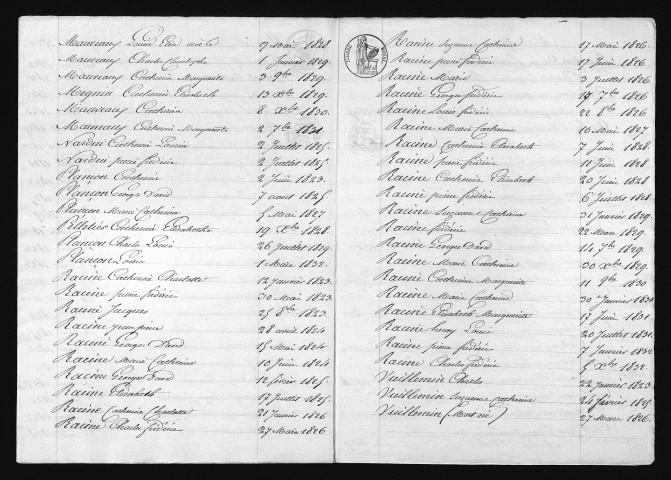 Mauveaux Louise
9 Mai 1828
Mauveaux Charles Christophe
1 Janvier 1829.
Mauveaux Catherine Marguerite
3 9bre 1829.
Megnin Catherine Elisabeth
13 Xbre 1829.
Mauveaux Catherine
8 Xbre 1830.
Catherine Marguerite
2 7bre 1831.
Nardin Catherine Louise
2 Juillet 1825.
Nardin pierre frédéric
2 Juillet 1825.
Plançon Catherine
2 Juin 1823.
Plançon Georges David
7 aout 1825
Plançon Marie Catherine
5 Mai 1827
Pelletier Catherine Elisabeth
19 Xbre 1828.
Plançon Charles Louis
26 Juillet 1829.
Plançon Louise
1 Mars 1832.
Racine Catherine Charlotte
12 Janvier 1823.
Racine pierre frédéric
30 Mai 1823.
Racine Jacques
25 8bre 1823.
Racine Jean pierre
28 avril 1824
Racine Georges David
15 Mai 1824
Racine Marie Catherine
10 Juin 1824
Racine Georges David
12 février 1825.
Racine Elisabeth
17 Juillet 1825.
Racine Catherine Charlotte
21 Janvier 1826
Racine Charles frédéric
27 Mars 1826
Racine Suzanne Catherine
17 Mai 1826.
Racine pierre frédéric
17 Juin 1826
Racine Marie
3 Juillet 1826
Racine Georges frédéric
17 7bre 1826
Racine Louis frédéric
22 8bre 1826
Racine Marie Catherine
10 Mai 1827
Racine Catherine Elisabeth
7 Juin 1828.
Racine pierre frédéric
11 Juin 1828
Racine Catherine Elisabeth
20 Juin 1828
Racine pierre frédéric
6 Juillet 1828
Racine Suzanne Catherine
31 Janvier 1829.
Racine frédéric
22 Mars 1829.
Racine Georges David
14 7bre 1829.
Racine Marie Catherine
30 Xbre 1829.
Racine Catherine Marguerite
11 9bre 1830
Racine Marie Catherine
30 Janvier 1831.
Racine Elisabeth Marguerite
17 Juin 1831
Racine Louise
20 Juillet 1831.
Racine pierre frédéric
7 Janvier 1832
Racine Charles frédéric
5 Xbre 1832.
Vuillemin Charles
22 Janvier 1823.
Vuillemin Suzanne Catherine
24 février 1825
Vuillemin (Mort né)
27 Mars 1826.